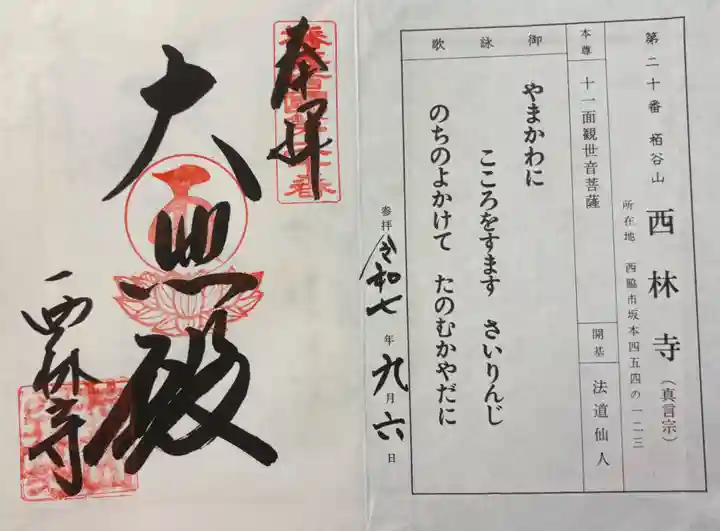 第二十番 栢谷山 西林寺(真言宗)
所在地 西脇市坂本四五四の一二三
本尊 十一面観世音菩薩 開基 法道仙人
御詠歌
やまかわに
こころをすます さいりんじ
のちのよかけて たのむかやだに
参拝 令和七年九月六日
奉拝
大悲殿
西林寺